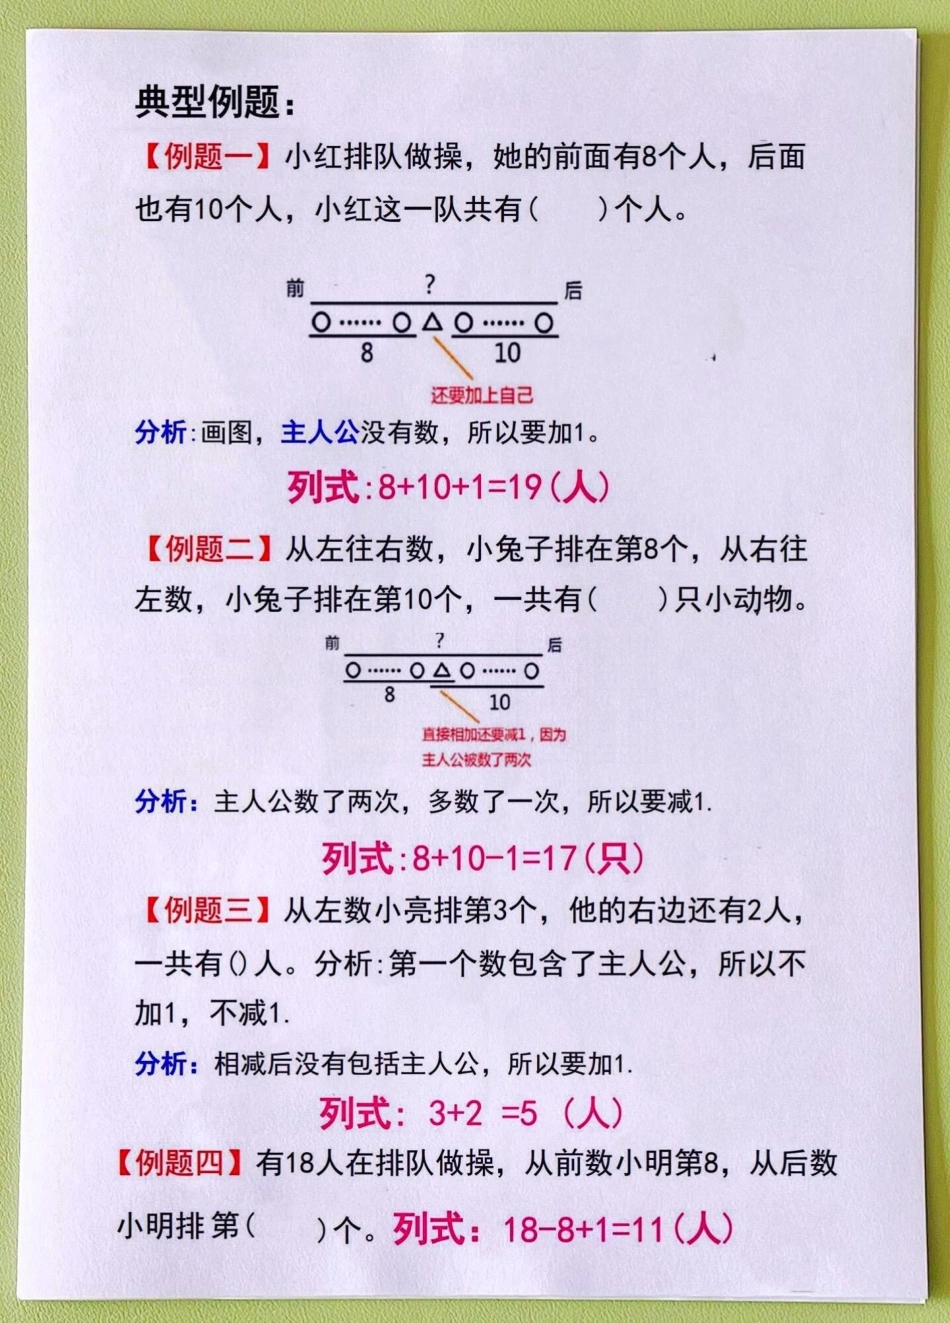 典型例题：
【例题一】小红排队做操，她的前面有8个人，后面
也有10个人，小红这一队共有(　　)个人。
前　?　后
○……○△○……○
8　10
还要加上自己
分析:画图，主人公没有数，所以要加1。
列式:8+10+1=19(人)
【例题二】从左往右数，小兔子排在第8个，从右往
左数，小兔子排在第10个，一共有(　　)只小动物。
前　?　后
○……○△○……○
8　10
直接相加还要减1，因为
主人公被数了两次
分析：主人公数了两次，多数了一次，所以要减1.
列式:8+10-1=17(只)
【例题三】从左数小亮排第3个，他的右边还有2人，
一共有()人。分析:第一个数包含了主人公，所以不
加1，不减1.
分析：相减后没有包括主人公，所以要加1.
列式：3+2 =5 (人)
【例题四】有18人在排队做操，从前数小明第8，从后数
小明排第(　　)个。列式：18-8+1=11(人)